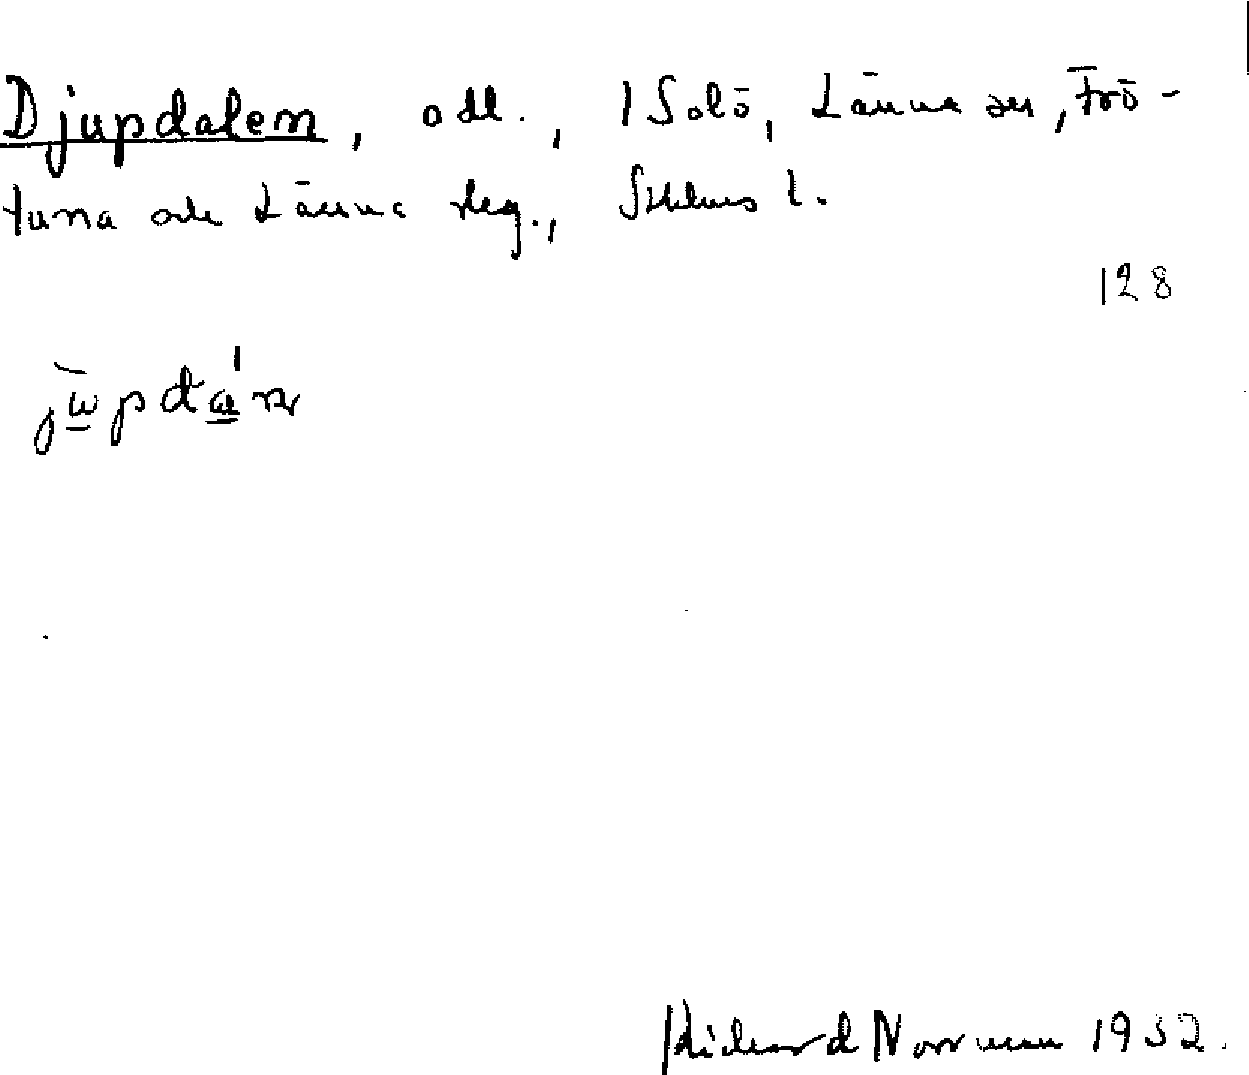 Djupdalen, odl., 1 Solö, Länna sn, Frö-
tuna och Länna skg., Sthlms l.
128
Richard Norrman 1932.